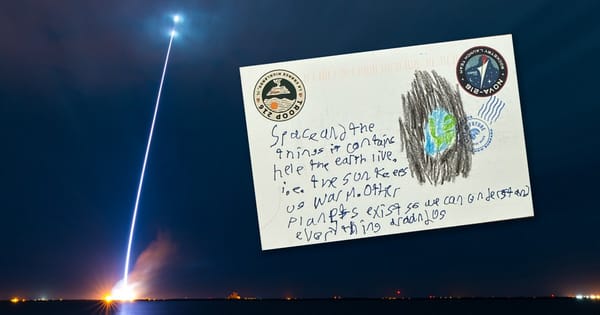 TROOP 216
NOVA-216
Space and the
things it contains
hele the earth live.
i.e. the sun keeps
us warm. Other
planets exist so we can understand
everything around us